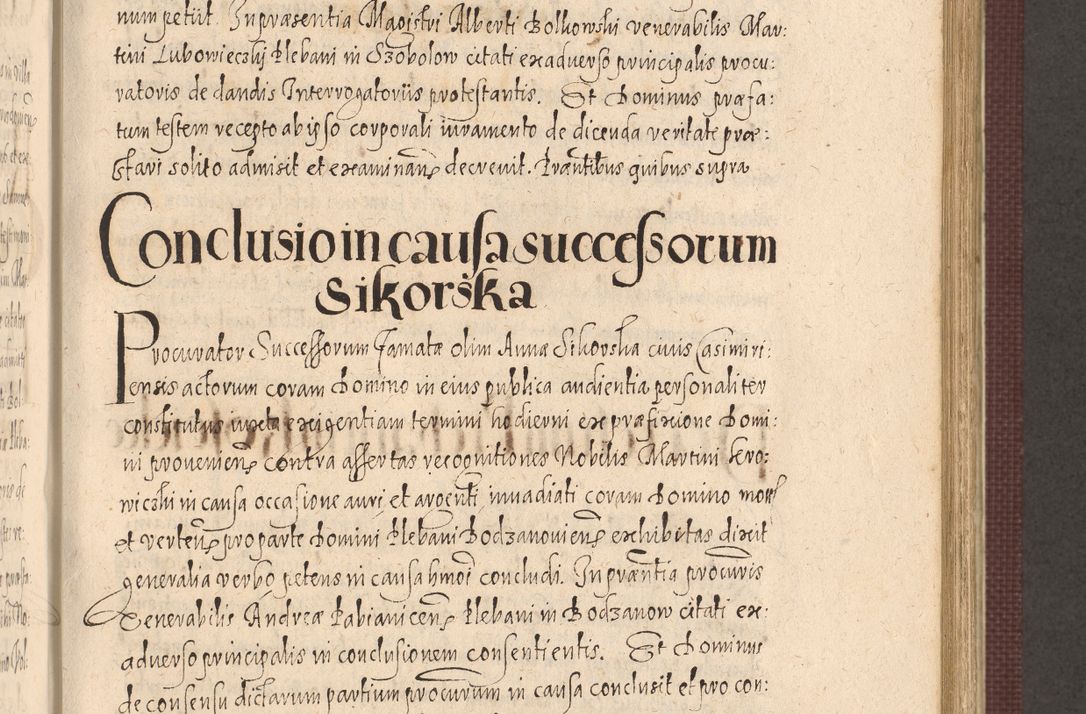 num petiit. In praesentia Magistri Alberti Bolkowski venerabilis Mar:
tini Lubowieczki Plebani in Szobolow citati ex adverso principalis procu:
ratoris de dandis Interrogatoriis protestantis. Et Dominus praefa:
tum testem recepto ab ipso corporali iuramento de dicenda veritate prae:
stari solito admisit et examinanđ decrevit. Prãntibus quibus supra
Conclusio in causa successorum
Sikorska
Procurator Successorum Famatae olim Annae Sikorska civis Casimiri:
ensis actorum coram Domino in eius publica audientia personaliter
constitutus iuxta exigentiam termini hodierni ex praefixione Domi:
ni provenienƷ contra assertas recognitiones Nobilis Martini
wiczki in causa occasione auri et argenti invadiati coram Domino
et vertenƷ pro parte Domini Plebani BodzanovienƷ exhibitas dixit
generalia verbo petens in causa hmõi concludi. In prãntia procũris
Venerabilis Andreae FabianicenƷ Plebani in Bodzanow citati ex:
adverso principalis in conclusionem consentientis. Et Dominus
de consensu dictarum partium procũrum in causa conclusit et pro con: